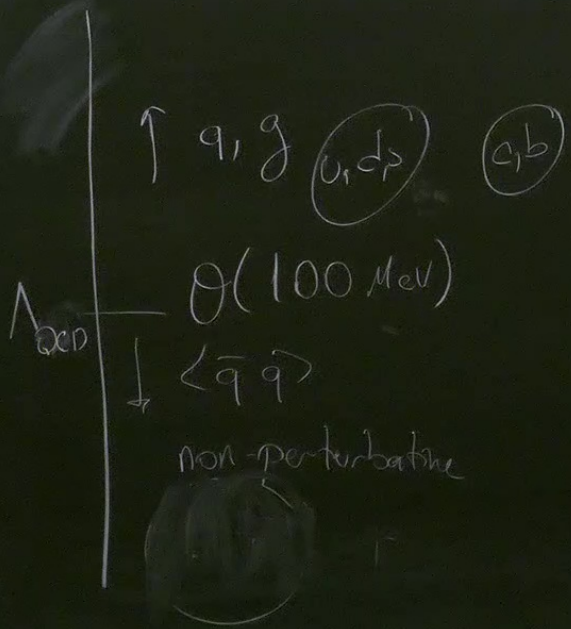 ↑ q, g (u, d, s) (c, b)
Λ_QCD — O(100 MeV)
↓ <q̄ q>
non-perturbative